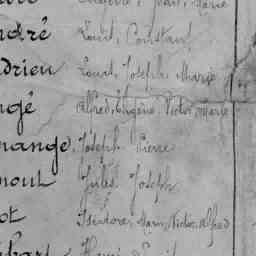 Marie
ndré Louis, Constant
drieu Louis, Joseph, Marie
ngé Alfred, Eugène, Victor, Marie
nange, Joseph, Pierre
mout Jules, Joseph
ot Isidore, Marie, Victor, Alfred
Henri